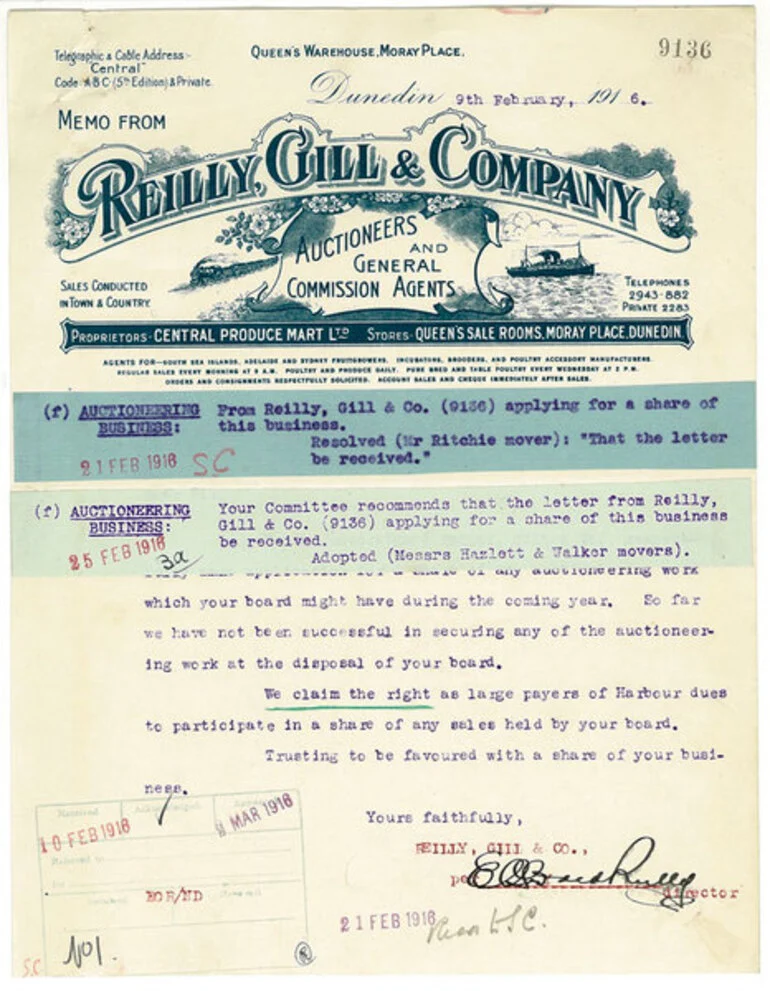 Telegraphic & Cable Address:-
"Central"
Code A B C (5th Edition) & Private.
QUEEN'S WAREHOUSE, MORAY PLACE.
9136
Dunedin 9th February, 1916.
MEMO FROM
REILLY, GILL & COMPANY
AUCTIONEERS
AND
GENERAL
COMMISSION AGENTS
SALES CONDUCTED
IN TOWN & COUNTRY.
TELEPHONES
2943-882
PRIVATE 2283
PROPRIETORS- CENTRAL PRODUCE MART LTD STORES- QUEEN'S SALE ROOMS, MORAY PLACE, DUNEDIN.
AGENTS FOR—SOUTH SEA ISLANDS, ADELAIDE AND SYDNEY FRUITGROWERS. INCUBATORS, BROODERS, AND POULTRY ACCESSORY MANUFACTURERS.
REGULAR SALES EVERY MORNING AT 9 A.M. POULTRY AND PRODUCE DAILY. PURE BRED AND TABLE POULTRY EVERY WEDNESDAY AT 2 P.M.
ORDERS AND CONSIGNMENTS RESPECTFULLY SOLICITED. ACCOUNT SALES AND CHEQUE IMMEDIATELY AFTER SALES.
(f) AUCTIONEERING From Reilly, Gill & Co. (9136) applying for a share of
BUSINESS: this business.
Resolved (Mr Ritchie mover): "That the letter
be received."
21 FEB 1916 SC
(f) AUCTIONEERING Your Committee recommends that the letter from Reilly,
BUSINESS: Gill & Co. (9136) applying for a share of this business
be received.
25 FEB 1916 3a
Adopted (Messrs Hazlett & Walker movers).
application for a share of any auctioneering work
which your board might have during the coming year. So far
we have not been successful in securing any of the auctioneer-
ing work at the disposal of your board.
We claim the right as large payers of Harbour dues
to participate in a share of any sales held by your board.
Trusting to be favoured with a share of your busi-
ness.
Yours faithfully,
REILLY, GILL & CO.,
per
director
Received
10 FEB 1916
MAR 1916
Referred to
EOR/ND
21 FEB 1916
No1.
SC